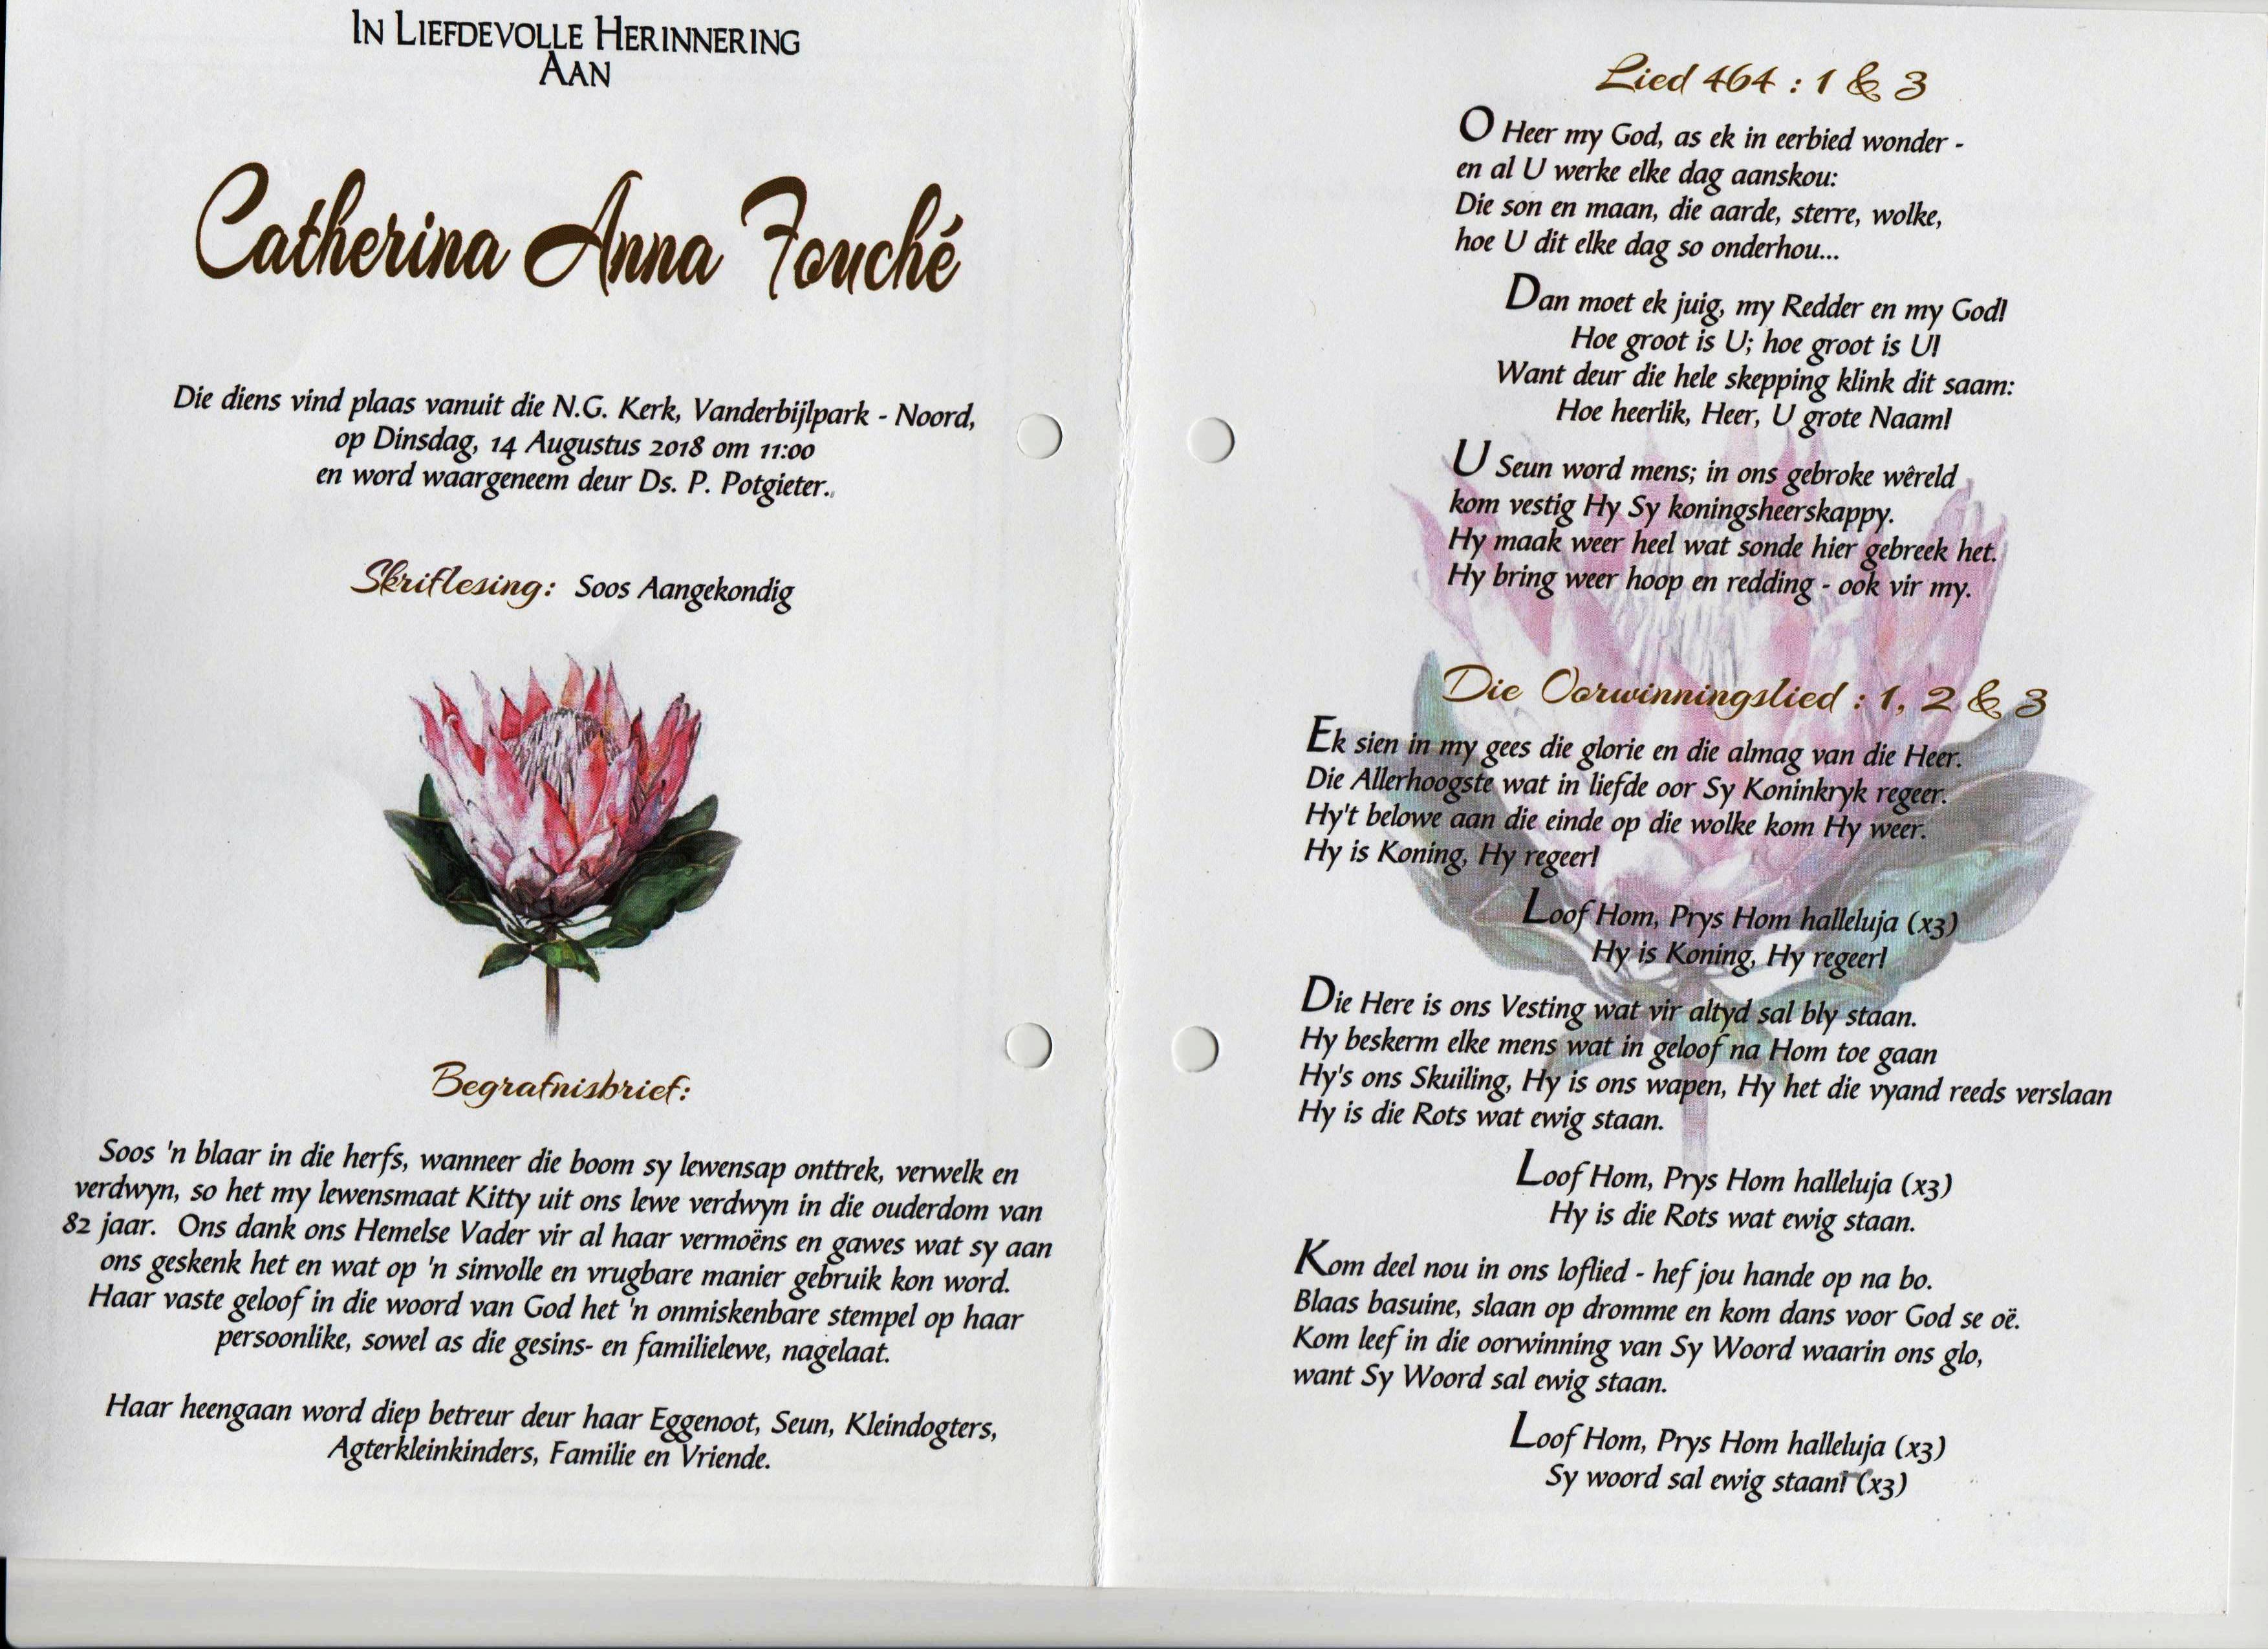 In Liefdevolle Herinnering
Aan
Catherina Anna Fouché
Die diens vind plaas vanuit die N.G. Kerk, Vanderbijlpark - Noord,
op Dinsdag, 14 Augustus 2018 om 11:00
en word waargeneem deur Ds. P. Potgieter.
Skriflesing: Soos Aangekondig
Begrafnisbrief:
Soos 'n blaar in die herfs, wanneer die boom sy lewensap onttrek, verwelk en
verdwyn, so het my lewensmaat Kitty uit ons lewe verdwyn in die ouderdom van
82 jaar. Ons dank ons Hemelse Vader vir al haar vermoëns en gawes wat sy aan
ons geskenk het en wat op 'n sinvolle en vrugbare manier gebruik kon word.
Haar vaste geloof in die woord van God het 'n onmiskenbare stempel op haar
persoonlike, sowel as die gesins- en familielewe, nagelaat.
Haar heengaan word diep betreur deur haar Eggenoot, Seun, Kleindogters,
Agterkleinkinders, Familie en Vriende.
Lied 464 : 1 & 3
O Heer my God, as ek in eerbied wonder -
en al U werke elke dag aanskou:
Die son en maan, die aarde, sterre, wolke,
hoe U dit elke dag so onderhou...
Dan moet ek juig, my Redder en my God!
Hoe groot is U; hoe groot is U!
Want deur die hele skepping klink dit saam:
Hoe heerlik, Heer, U grote Naam!
U Seun word mens; in ons gebroke wêreld
kom vestig Hy Sy koningsheerskappy.
Hy maak weer heel wat sonde hier gebreek het.
Hy bring weer hoop en redding - ook vir my.
Die Oorwinningslied : 1, 2 & 3
Ek sien in my gees die glorie en die almag van die Heer.
Die Allerhoogste wat in liefde oor Sy Koninkryk regeer.
Hy't belowe aan die einde op die wolke kom Hy weer.
Hy is Koning, Hy regeer!
Loof Hom, Prys Hom halleluja (x3)
Hy is Koning, Hy regeer!
Die Here is ons Vesting wat vir altyd sal bly staan.
Hy beskerm elke mens wat in geloof na Hom toe gaan
Hy's ons Skuiling, Hy is ons wapen, Hy het die vyand reeds verslaan
Hy is die Rots wat ewig staan.
Loof Hom, Prys Hom halleluja (x3)
Hy is die Rots wat ewig staan.
Kom deel nou in ons loflied - hef jou hande op na bo.
Blaas basuine, slaan op dromme en kom dans voor God se oë.
Kom leef in die oorwinning van Sy Woord waarin ons glo,
want Sy Woord sal ewig staan.
Loof Hom, Prys Hom halleluja (x3)
Sy woord sal ewig staan! (x3)